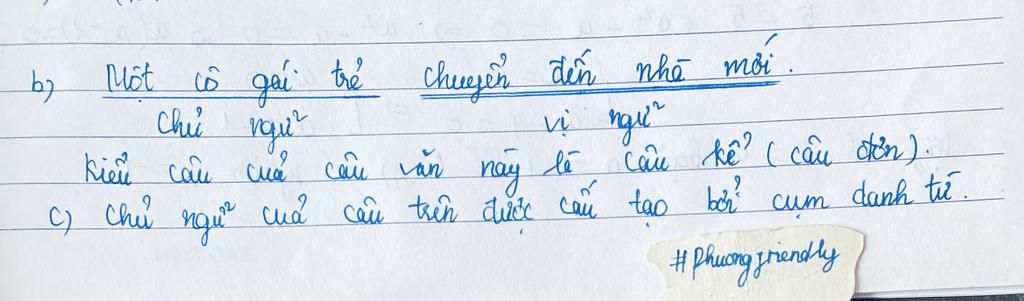 b) Một cô gái trẻ chuyển đến nhà mới.
chủ ngữ vị ngữ
kiểu câu cuả câu văn này là câu kể (câu đơn).
c) chủ ngữ cuả câu trên được cấú tạo bởi cụm danh từ.
#phuongfriendly